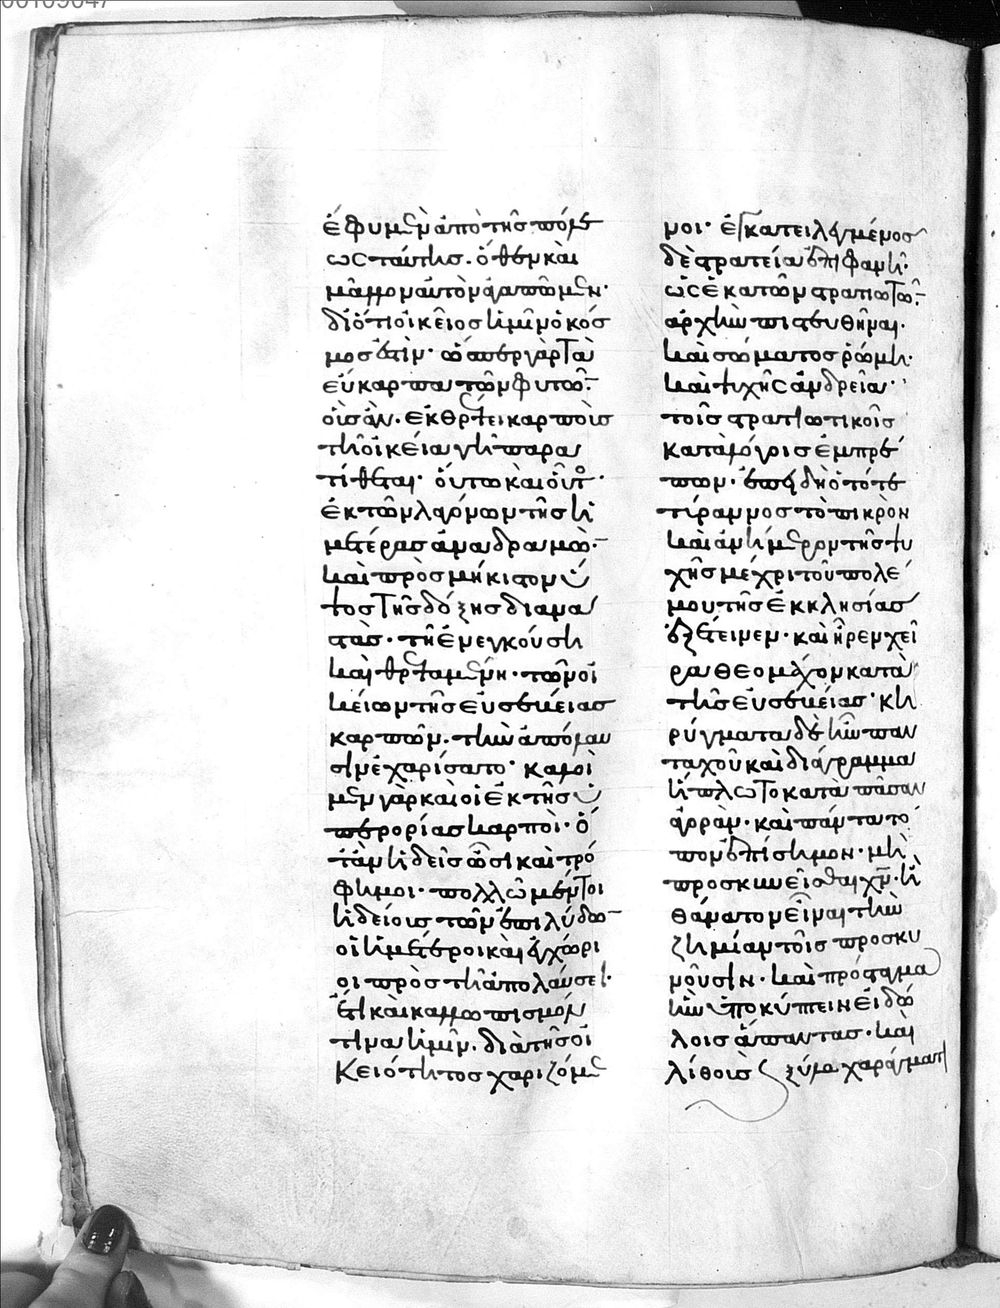 00109047
ἔφυμεν ἀπὸ τῆς πόλε
ως ταύτης. ὅθεν καὶ
μᾶλλον αὐτὸν ἀγαπῶμεν·
διότι οἰκεῖος ἡμῖν ὁ κόσ
μος ἐστὶν· ὥσπερ γὰρ τὰ
εὔκαρπα τῶν φυτῶν·
οἷς ἂν ἐκθρέψει καρποῖς
τῇ οἰκείᾳ γῇ παρα
τίθεται· οὕτω καὶ οὗτος·
ἐκ τῶν λαγόνων τῆς ἡ
μετέρας ἀναδραμὼν·
καὶ πρὸς μήκιστον ὕ
ψος τῆς δόξης διανα
στὰς· τῇ ἐνεγκούσῃ
καὶ θρεψαμένῃ· τῶν οἰ
κείων τῆς εὐσεβείας
καρπῶν· τὴν ἀπόλαυ
σιν ἐχαρίσατο· καλοὶ
μὲν γὰρ καὶ οἱ ἐκ τῆς ὑ
περορίας καρποὶ· ὅ
τἂν ἡδεῖς ὦσι καὶ τρό
φιμοι· πολλῷ μέντοι
ἡδείους τῶν ἐπιλύδων
οἱ ἡμέτεροι καὶ ἐγχώρι
οι πρὸς τὴν ἀπόλαυσιν·
ἔτι καὶ καλλωπισμόν
τινα ἡμῖν. διὰ τῆς οἰ
κειότητος χαριζόμε
νοι· ἐγκατειλεγμένος
δὲ στρατείᾳ ἐπιφανεῖ·
ὡς ἑκατὸν στρατιωτῶν·
ἀρχὴν πιστευθῆναι·
καὶ σώματος ῥώμῃ·
καὶ ψυχῆς ἀνδρείᾳ·
τοῖς στρατιωτικοῖς
καταλόγοις ἐμπρέ
πων· ἐπειδὴ ὁ τότε
τύραννος τὸ πικρὸν
καὶ ἀνήμερον τῆς ψυ
χῆς μέχρι τοῦ πολέ
μου τῆς ἐκκλησίας
ἐξέτεινεν· καὶ ἦρεν χεῖ
ρα θεομάχον κατὰ
τῆς εὐσεβείας· κη
ρύγματα δὲ ἦν παν
ταχοῦ καὶ διάγραμμα
ἥπλωτο κατὰ πᾶσαν
ἀγορὰν· καὶ πάντα τό
πον ἐπίσημον· μὴ
προσκυνεῖσθαι χν· ἢ
θάνατον εἶναι τὴν
ζημίαν τοῖς προσκυ
νοῦσιν· καὶ πρόσταγμα
ἦν ὑποκύπτειν εἰδώ
λοις ἅπαντας· καὶ
λίθοις ξύλα χαράγματι